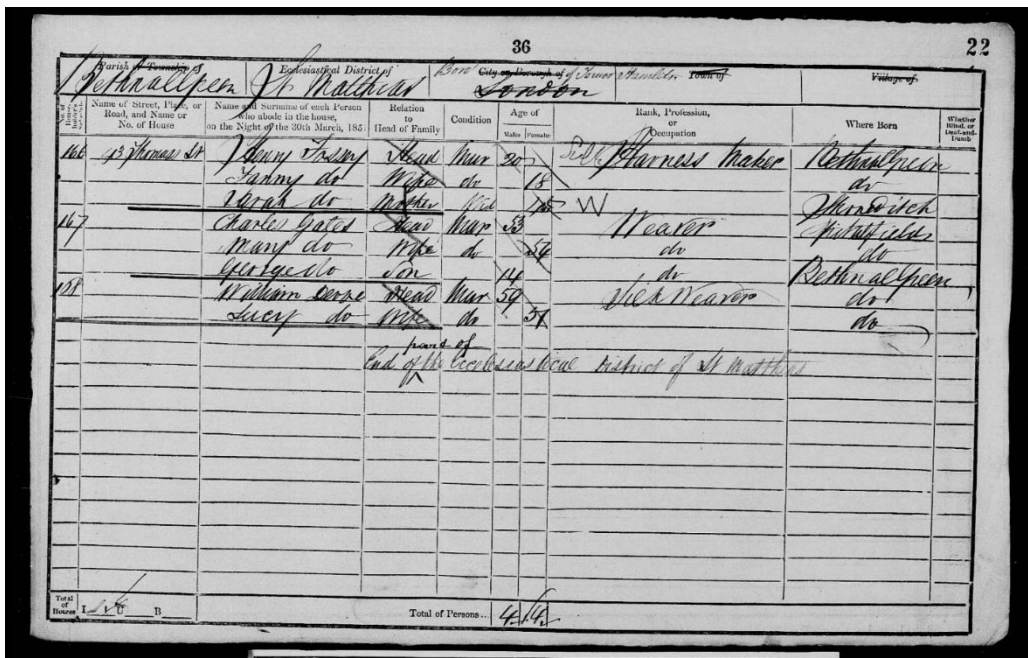 36
22
Parish or Township of
Ecclesiastical District of
City or Borough of
Town of
Village of
Bethnal Green
St Matthias
Boro' of Tower Hamlets
London
No. of Householder's Schedule
Name of Street, Place, or Road, and Name or No. of House
Name and Surname of each Person who abode in the house, on the Night of the 30th March, 1851
Relation to Head of Family
Condition
Age of
Males
Females
Rank, Profession, or Occupation
Where Born
Whether Blind, or Deaf-and-Dumb
166 93 Thomas St Henry Head Mar 20 Silk Harness Maker Bethnal Green
Fanny do Wife do 18 do
Sarah do Mother Wid W Shoreditch
167 Charles Gates Head Mar 53 Weaver Spitalfields
Mary do Wife do 54 do do
George do Son 14 do Bethnal Green
168 William Head Mar 59 Silk Weaver do
Lucy do Wife do 51 do
part of
End of the Ecclesiastical District of St Matthias
Total of Houses
I
U
B
Total of Persons... 4 4